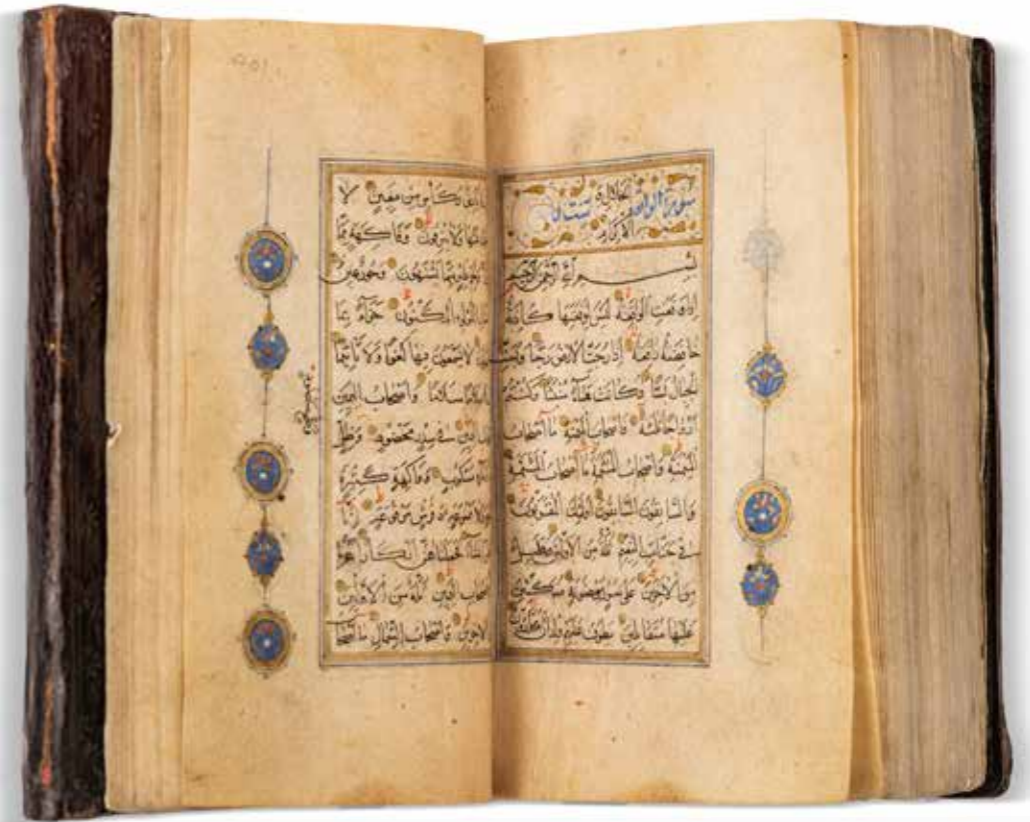 سورة الواقعة
الجلال و
الاكرام
بسم الله الرحمن الرحيم
اذا وقعت الواقعة ليس لوقعتها كاذبة
خافضة رافعة اذا رجت الارض رجا وبست
الجبال بسا فكانت هباء منبثا وكنتم
ازواجا ثلثة فاصحاب الميمنة ما اصحاب
الميمنة واصحاب المشئمة ما اصحاب المشئمة
والسابقون السابقون اولئك المقربون
في جنات النعيم ثلة من الاولين وقليل
من الاخرين على سرر موضونة متكئين
عليها متقابلين يطوف عليهم ولدان مخلدون
وكأس من معين لا
عنها ولا ينزفون وفاكهة مما
ولحم طير مما يشتهون وحور عين
اللؤلؤ المكنون جزاء بما
لا يسمعون فيها لغوا ولا تأثيما
سلاما سلاما واصحاب اليمين
اليمين في سدر مخضود وظل
وماء مسكوب وفاكهة كثيرة
ولا ممنوعة وفرش مرفوعة انا
انشاء فجعلناهن ابكارا عربا
لاصحاب اليمين ثلة من الاولين
الاخرين واصحاب الشمال ما اصحاب